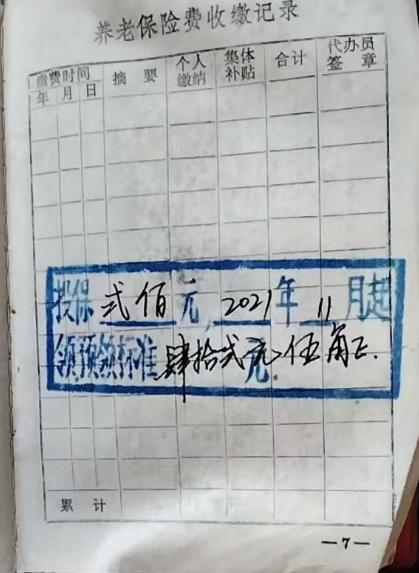 养老保险费收缴记录
缴费时间 摘要 个人缴纳 集体补贴 合计 代办员签章
年 月 日
投保 贰佰 元, 2021 年 11 月起
领预领标准 肆拾贰元伍角正.
累计
—7—